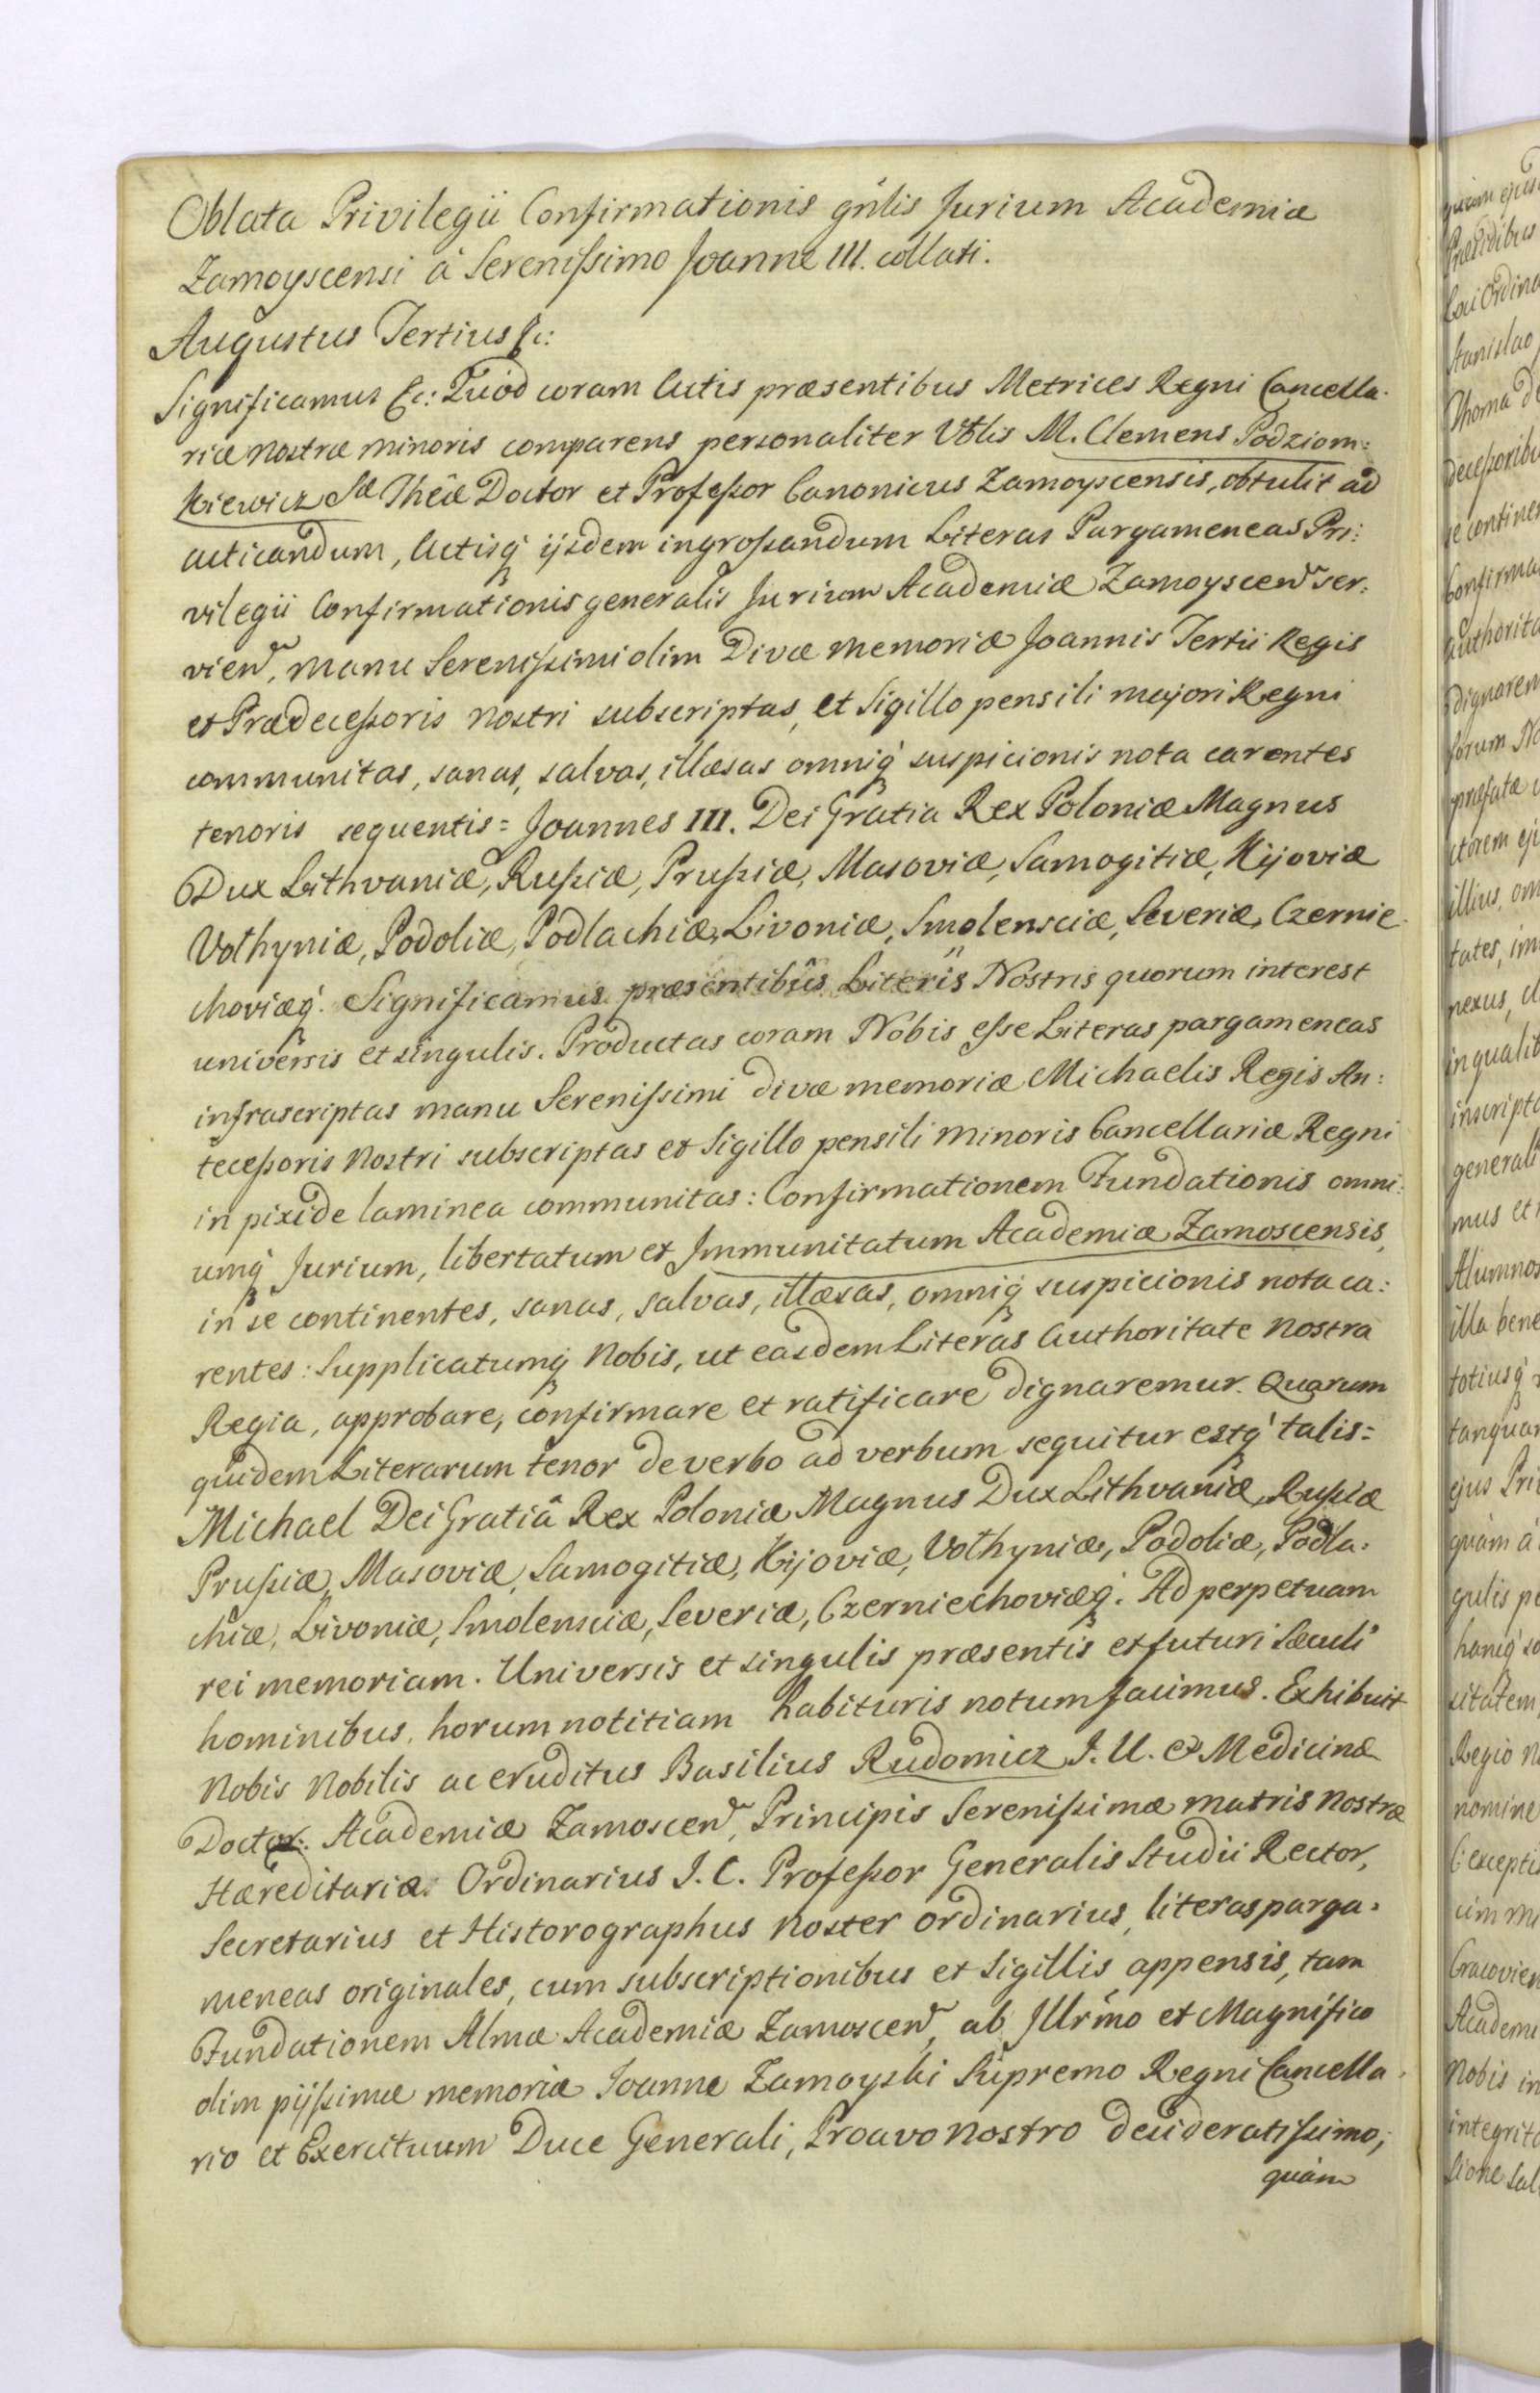 Oblata Privilegii Confirmationis gńlis Jurium Academiæ
Zamoyscensi á Serenissimo Joanne III. collati.
Augustus Tertius &c:
Significamus &c: Quòd coram Actis præsentibus Metrices Regni Cancella-
riæ nostræ minoris comparens personaliter Vblis M. Clemens Podziom:
kiewicz Sæ Thêæ Doctor et Professor Canonicus Zamoyscensis, obtulit ad
acticandum, Actisq́ ijsdem ingrossandum Literas Pargameneas Pri:
vilegii Confirmationis generalis Jurium Academiæ Zamoyscen̄ ser:
vien̄, manu Serenissimi olim Divæ memoriæ Joannis Tertii Regis
et Prædecessoris nostri subscriptas, et Sigillo pensili majori Regni
communitas, sanas, salvas, illæsas omniq́ suspicionis nota carentes
tenoris sequentis = Joannes III. Dei Gratia Rex Poloniæ Magnus
Dux Lithvaniæ, Russiæ, Prussiæ, Masoviæ, Samogitiæ, Kijoviæ
Volhyniæ, Podoliæ, Podlachiæ, Livoniæ, Smolensciæ, Severiæ, Czernie-
choviæq́. Significamus præsentibûs Literis Nostris quorum interest
universis et singulis. Productas coram Nobis esse Literas pargameneas
infrascriptas manu Serenissimi divæ memoriæ Michaelis Regis An:
tecessoris nostri subscriptas et Sigillo pensili minoris Cancellariæ Regni
in pixide laminea communitas: Confirmationem Fundationis omni:
umq́ Jurium, libertatum et Immunitatum Academiæ Zamoscensis,
in se continentes, sanas, salvas, illæsas, omniq́ suspicionis nota ca:
rentes: Supplicatumq́ Nobis, ut easdem Literas Authoritate nostra
Regia, approbare, confirmare et ratificare dignaremur. Quarum
quidem Literarum tenor de verbo ad verbum sequitur estq́ talis =
Michael Dei Gratiâ Rex Poloniæ Magnus Dux Lithvaniæ, Russiæ
Prussiæ, Masoviæ, Samogitiæ, Kijoviæ, Volhyniæ, Podoliæ, Podla:
chiæ, Livoniæ, Smolensciæ, Severiæ, Czerniechoviæq́. Ad perpetuam
rei memoriam. Universis et singulis præsentis et futuri Sæculi
hominibus, horum notitiam habituris notum facimus. Exhibuit
Nobis Nobilis ac eruditus Basilius Rudomicz J. U. & Medicinæ
Doctor. Academiæ Zamoscen̄, Principis Serenissimæ matris nostræ
Hæreditariæ. Ordinarius J. C. Professor Generalis Studii Rector,
Secretarius et Historographus noster ordinarius, literas parga:
meneas originales, cum subscriptionibus et Sigillis appensis, tam
Fundationem Almæ Academiæ Zamoscen̄, ab Jllrḿo et Magnifico
olim pijssimæ memoriæ Joanne Zamoyski Supremo Regni Cancella-
rio et Exercituum Duce Generali, Proavo nostro desideratissimo,
quàm